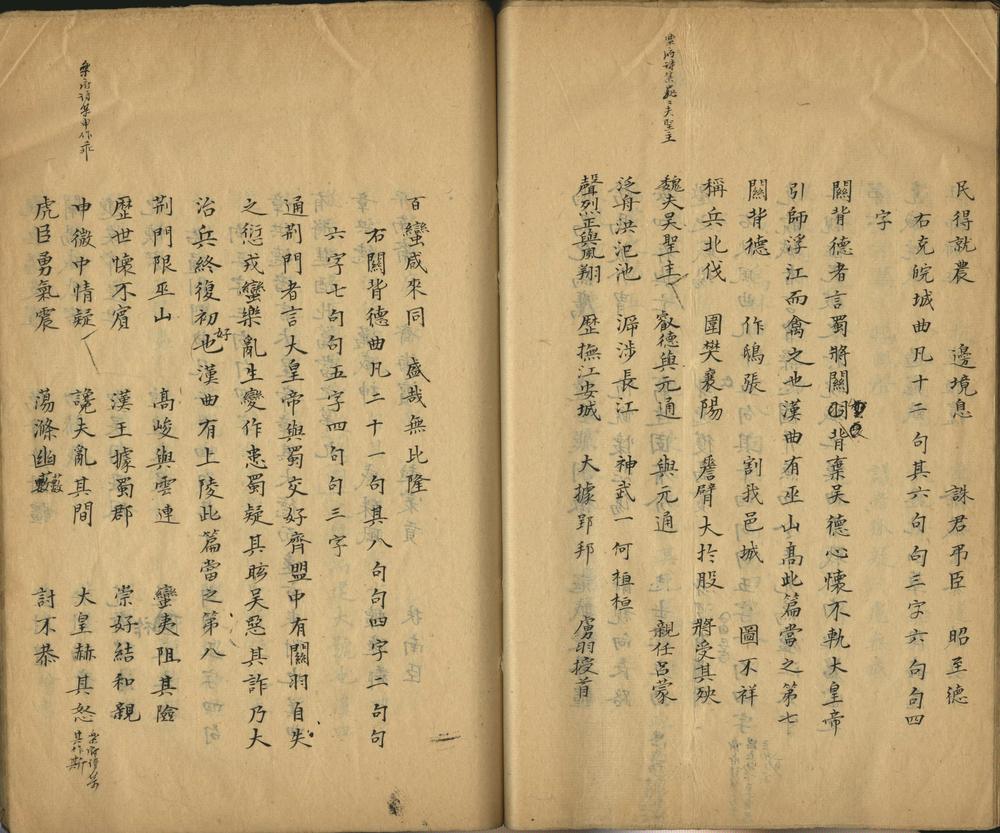 民得就農 邊境息 誅君弔臣 昭至德
右克皖城曲凡十二句其六句句三字六句句四
字
關背德者言蜀將關羽背棄吳德心懷不軌大皇帝
引師浮江而禽之也漢曲有巫山高此篇當之第七
關背德 作鴟張 割我邑城 圖不祥
稱兵北伐 圍樊襄陽 臂大於股 將受其殃
夫聖主
魏夫吳聖主 叡德與元通 與元通 親任呂蒙
泛舟洪氾池 泝涉長江 神武一何桓桓
聲烈正與風翔 歷撫江安城 大據郢邦 虜羽授首
百蠻咸來同 盛哉無比隆
右關背德曲凡二十一句其八句句四字二句句
六字七句句五字四句句三字
通荆門者言大皇帝與蜀交好齊盟中有關羽自失
之愆戎蠻樂亂生變作患蜀疑其眩吳惡其詐乃大
治兵終復初好也漢曲有上陵此篇當之第八
荆門限巫山 高峻與雲連 蠻夷阻其險
歷世懷不賓 漢王據蜀郡 崇好結和親
樂府詩集中作乖
中微中情疑 讒夫亂其間 大皇赫其怒
樂府詩集其作斯
虎臣勇氣震 蕩滌幽藪 討不恭